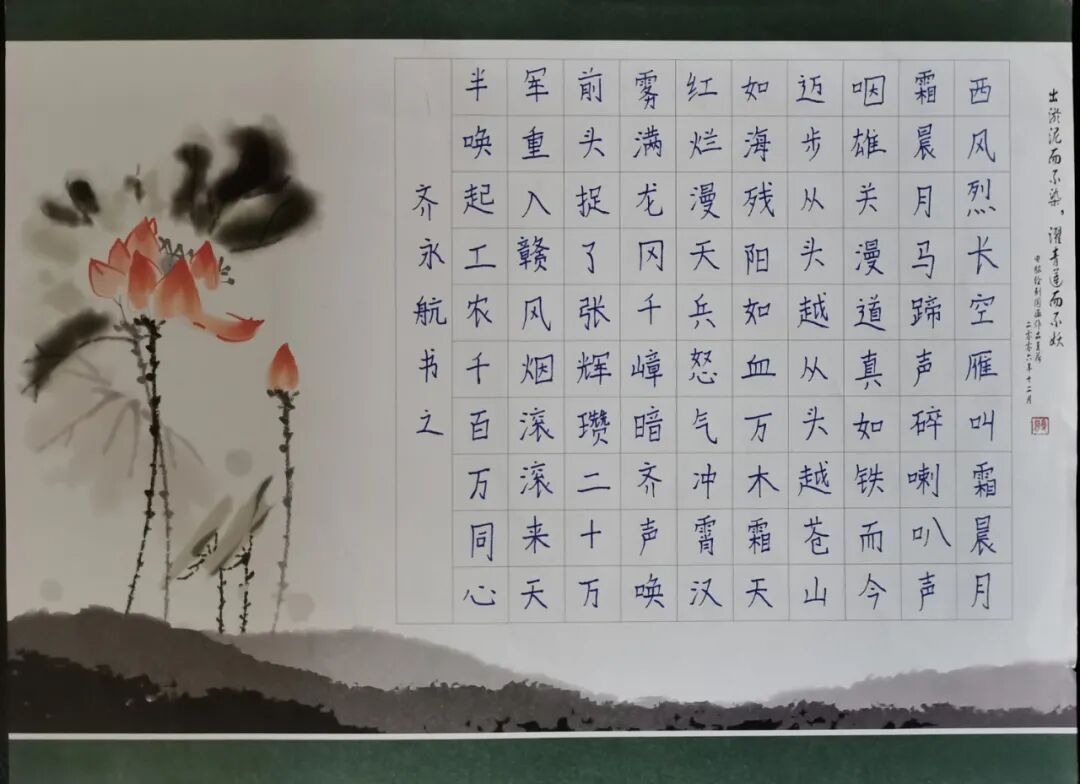 出淤泥而不染，濯青莲而不妖
电脑绘制国画作品夏荷
二零零六年十二月
西风烈长空雁叫霜晨月
霜晨月马蹄声碎喇叭声
咽雄关漫道真如铁而今
迈步从头越从头越苍山
如海残阳如血万木霜天
红烂漫天兵怒气冲霄汉
雾满龙冈千嶂暗齐声唤
前头捉了张辉瓒二十万
军重入赣风烟滚滚来天
半唤起工农千百万同心
齐永航书之